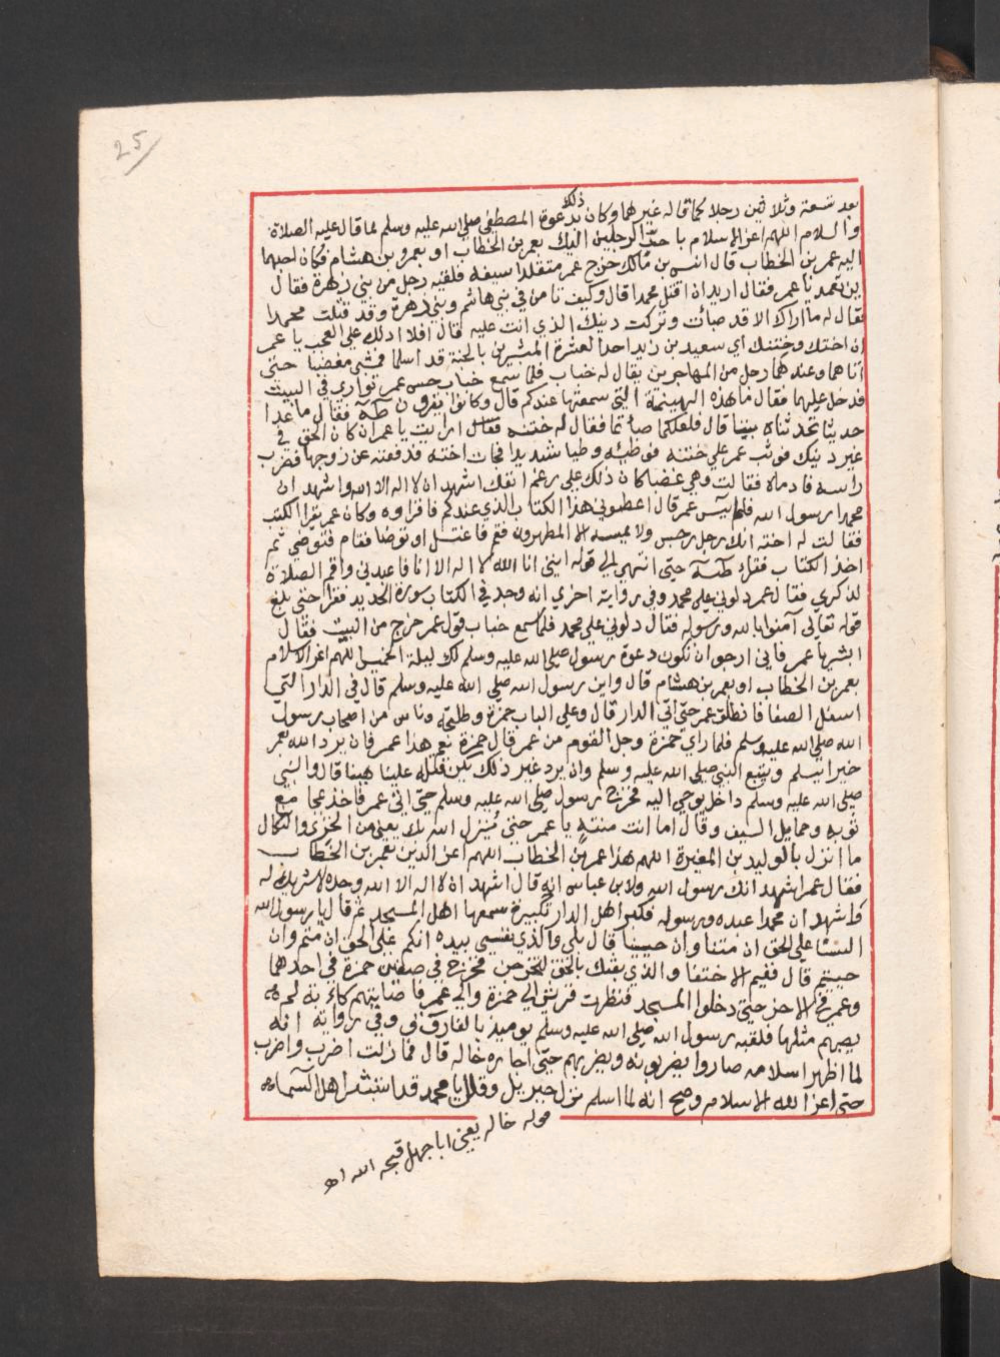 25
بعد تسعة وثلاثين رجلا كما قاله غيرهما وكان ذلك بدعوة المصطفى صلى الله عليه وسلم لما قال عليه الصلاة
والسلام اللهم اعز الاسلام باحب الرجلين اليك بعمر بن الخطاب او بعمرو بن هشام فكان احبهما
اليه عمر بن الخطاب قال انس بن مالك خرج عمر متقلدا سيفه فلقيه رجل من بني زهرة فقال
اين تعمد يا عمر فقال اريد ان اقتل محمدا قال وكيف تامن في بني هاشم وبني زهرة وقد قتلت محمدا
فقال له ما اراك الا قد صبائت وتركت دينك الذي انت عليه قال افلا ادلك على العجب يا عمر
ان اختك وختنك اي سعيد بن زيد احد العشرة المبشرين بالجنة قد اسلما فمشى مغضبا حتى
اتاهما وعندهما رجل من المهاجرين يقال له خباب فلما سمع خباب حس عمر توارى في البيت
فدخل عليهما فقال ما هذه الهينمة التي سمعتها عندكم قال وكانوا يقرون طه فقال ما عدا
حديثا تحدثناه بيننا قال فلعلكما صباتما فقال له ختنه فقال ارايت يا عمر ان كان الحق في
غير دينك فوثب عمر على ختنه فوطئه وطيا شديدا فجات اخته فدفعته عن زوجها فضرب
راسه فادماه فقالت وهي غضبا كان ذلك على رغم انفك اشهد ان لا اله الا الله واشهد ان
محمدا رسول الله فلما يئس عمر قال اعطوني هذا الكتاب الذي عندكم فاقراوه وكان عمر يقرا الكتب
فقالت له اخته انك رجل رجس ولا يمسه الا المطهرون فقم فاغتسل او توضا فقام فتوضى ثم
اخذ الكتاب فقرا طه حتى انتهى الى قوله انني انا الله لا اله الا انا فاعبدني واقم الصلاة
لذكري فقال عمر دلوني على محمد وفي رواية اخري انه وجد في الكتاب سورة الحديد فقرا حتى بلغ
قوله تعالى آمنوا بالله ورسوله فقال دلوني على محمد فلما سمع خباب قول عمر خرج من البيت فقال
ابشر يا عمر فاني ارجو ان تكون دعوة رسول صلى الله عليه وسلم لك ليلة الخميس اللهم اعز الاسلام
بعمر بن الخطاب او بعمر بن هشام قال واين رسول الله صلى الله عليه وسلم قال في الدار التي
اسفل الصفا فانطلق عمر حتى اتى الدار قال وعلى الباب حمزة وطلحة وناس من اصحاب رسول
الله صلى الله عليه وسلم فلما راي حمزة وجل القوم من عمر قال حمزة نعم هذا عمر فان يرد الله بعمر
خيرا يسلم ويتبع النبي صلى الله عليه وسلم وان يرد غير ذلك يكن قتله علينا هينا قال والنبي
صلى الله عليه وسلم داخل يوحي اليه فخرج رسول صلى الله عليه وسلم حتى اتى عمر فاخذ بمجامع
ثوبه وحمايل السيف وقال اما انت منته يا عمر حتى ينزل الله بك يعني من الخزي والنكال
ما انزل بالوليد بن المغيرة اللهم هذا عمر بن الخطاب اللهم اعز الدين بعمر بن الخطاب
فقال عمر اشهد انك رسول الله ولابن عباس انه قال اشهد ان لا اله الا الله وحده لا شريك له
واشهد ان محمدا عبده ورسوله فكبر اهل الدار تكبيرة سمعها اهل المسجد ثم قال يا رسول الله
السنا على الحق ان متنا وان حيينا قال بلى والذي نفسي بيده انكم على الحق ان متم وان
حييتم قال ففيم الاختفا والذي بعثك بالحق لتخرجن فخرج في صفين حمزة في احدهما
وعمر في الاخر حتى دخلوا المسجد فنظرت قريش الى حمزة والى عمر فاصابتهم كابة لم
يصبهم مثلها فلقبه رسول الله صلى الله عليه وسلم يوميذ بالفاروق وفي رواية انه
لما اظهر اسلامه صاروا يضربونه ويضربهم حتى اجاره خاله قال فما زلت اضرب واضرب
حتى اعز الله الاسلام وصح انه لما اسلم نزل جبريل وقال يا محمد قد استبشر اهل السماء
قوله خاله يعني ابا جهل قبحه الله اه